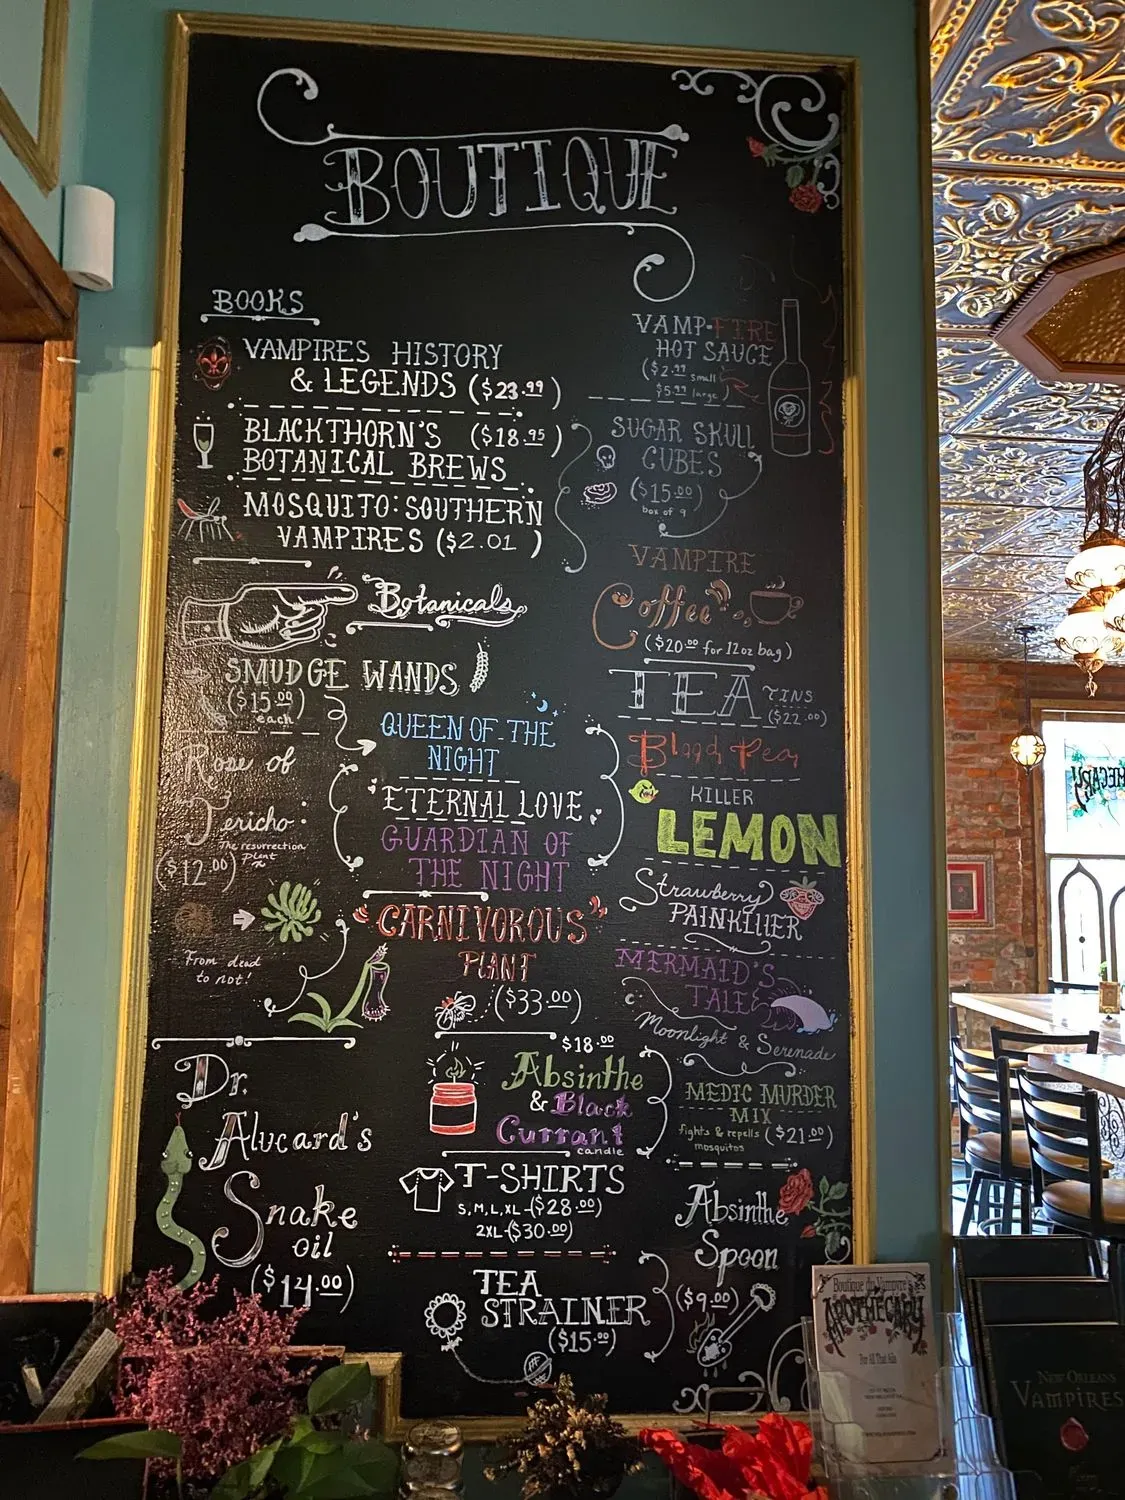 BOUTIQUE
BOOKS
VAMPIRES HISTORY
& LEGENDS ($23.99)
BLACKTHORN'S ($18.95)
BOTANICAL BREWS
MOSQUITO: SOUTHERN
VAMPIRES ($2.01)
Botanicals
SMUDGE WANDS
($15.00)
each
QUEEN OF THE
NIGHT
ETERNAL LOVE
GUARDIAN OF
THE NIGHT
Rose of
Jericho:
The resurrection
plant
($12.00)
From dead
to not!
"CARNIVOROUS"
PLANT
($33.00)
Dr.
Alucard's
Snake
oil
($14.00)
$18.00
Absinthe
& Black
Currant
candle
T-SHIRTS
S, M, L, XL-($28.00)
2XL-($30.00)
TEA
STRAINER
($15.00)
VAMP-FIRE
HOT SAUCE
($2.99 small
$5.99 large)
SUGAR SKULL
CUBES
($15.00)
box of 9
VAMPIRE
Coffee
($20.00 for 12oz bag)
TEA TINS
($22.00)
KILLER
LEMON
Strawberry
PAINKILLER
MERMAID'S
TALE
Moonlight & Serenade
MEDIC MURDER
MIX
fights & repells ($21.00)
mosquitos
Absinthe
Spoon
($9.00)
Boutique du Vampyre
APOTHECARY
For All That Ails
NEW ORLEANS
VAMPIRES